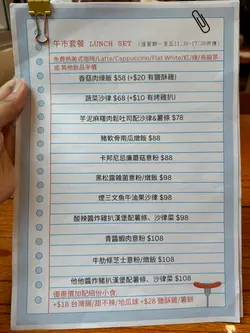 午市套餐 LUNCH SET (星期一至五11:30-17:30供應)
免費熱美式咖啡/Latte/Cappuccino/Flat White/紅/綠/烏龍茶
或 其他飲品半價
香菇肉燥飯 $58 (+$20 有鹽酥雞)
蔬菜沙律 $68 (+$10 有烤雞扒)
芋泥麻糬肉鬆吐司配沙律&薯條 $78
豬軟骨南瓜燉飯 $88
卡邦尼忌廉蘑菇意粉 $88
黑松露雜菌意粉/燉飯 $98
煙三文魚牛油果沙律 $98
酸辣醬炸雞扒漢堡配薯條、沙律菜 $98
青醬蝦肉意粉 $108
牛肋條芝士意粉/燉飯 $108
他他醬炸豬扒漢堡配薯條、沙律菜 $108
優惠價加配細份小食:
+$18 台灣腸/甜不辣/地瓜球 +$28 鹽酥雞/薯餅